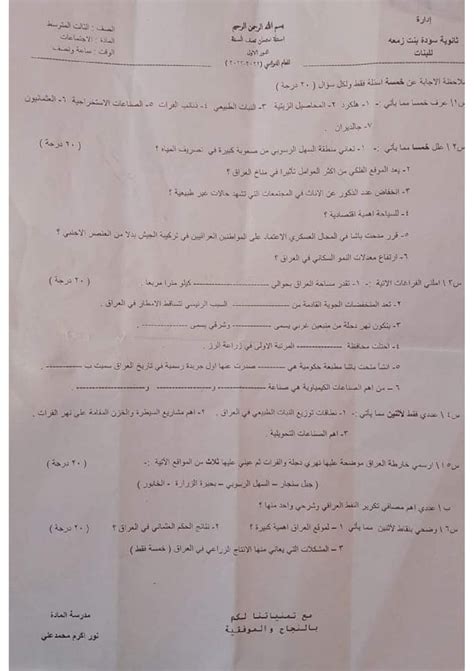 إدارة
ثانوية سودة بنت زمعه
للبنات
بسم الله الرحمن الرحيم
اسئلة امتحان نصف السنة
الدور الاول
للعام الدراسي (٢٠٢١-٢٠٢٢)
الصف : الثالث المتوسط
المادة : الاجتماعيات
الوقت : ساعة ونصف
ملاحظة الاجابة عن خمسة اسئلة فقط ولكل سؤال ( ٢٠ درجة )
س١) عرف خمسا مما يأتي :- ١- هلكرد ٢- المحاصيل الزيتية ٣- النبات الطبيعي ٤- ذنائب الفرات ٥- الصناعات الاستخراجية ٦- العثمانيون
٧- جالديران
س٢) علل خمسا مما يأتي :- ١- تعاني منطقة السهل الرسوبي من صعوبة كبيرة في تصريف المياه ؟ ( ٢٠ درجة )
٢- يعد الموقع الفلكي من اكثر العوامل تأثيرا في مناخ العراق ؟
٣- انخفاض عدد الذكور عن الاناث في المجتمعات التي تشهد حالات غير طبيعية ؟
٤- للسياحة اهمية اقتصادية ؟
٥- قرر مدحت باشا في المجال العسكري الاعتماد على المواطنين العراقيين في تركيبة الجيش بدلا من العنصر الاجنبي ؟
٦- ارتفاع معدلات النمو السكاني في العراق ؟
س٣) املئي الفراغات الاتية :- ١- تقدر مساحة العراق بحوالي ---------- كيلو مترا مربعا . ( ٢٠ درجة )
٢- تعد المنخفضات الجوية القادمة من ---------- السبب الرئيسي لتساقط الامطار في العراق .
٣- يتكون نهر دجلة من منبعين غربي يسمى ---------- وشرقي يسمى ----------
٤- احتلت محافظة ---------- المرتبة الاولى في زراعة الرز .
٥- انشأ مدحت باشا مطبعة حكومية هي ---------- صدرت عنها اول جريدة رسمية في تاريخ العراق سميت ب ----------
٦ – من اهم الصناعات الكيمياوية هي صناعة ---------- و ---------- و ---------- .
س٤) عددي فقط لاثنين مما يأتي :- ١- نطاقات توزيع النبات الطبيعي في العراق . ٢- اهم مشاريع السيطرة والخزن المقامة على نهر الفرات .
٣- اهم الصناعات التحويلية . ( ٢٠ درجة )
س٥) ا ارسمي خارطة العراق موضحة عليها نهري دجلة والفرات ثم عيني عليها ثلاث من المواقع الآتية :-
( جبل سنجار – السهل الرسوبي – بحيرة الرزازة - الخابور ) ( ٢٠ درجة )
ب ) عددي اهم مصافي تكرير النفط العراقي وشرحي واحد منها ؟
س٦) وضحي بنقاط لاثنين مما يأتي :- ١ – لموقع العراق اهمية كبيرة ؟ ٢- نتائج الحكم العثماني في العراق ؟
٣ – المشكلات التي يعاني منها الانتاج الزراعي في العراق ( خمسة فقط ) ( ٢٠ درجة )
مع تمنياتنا لكم
بالنجاح والموفقية
مدرسة المادة
نور اكرم محمدعلي